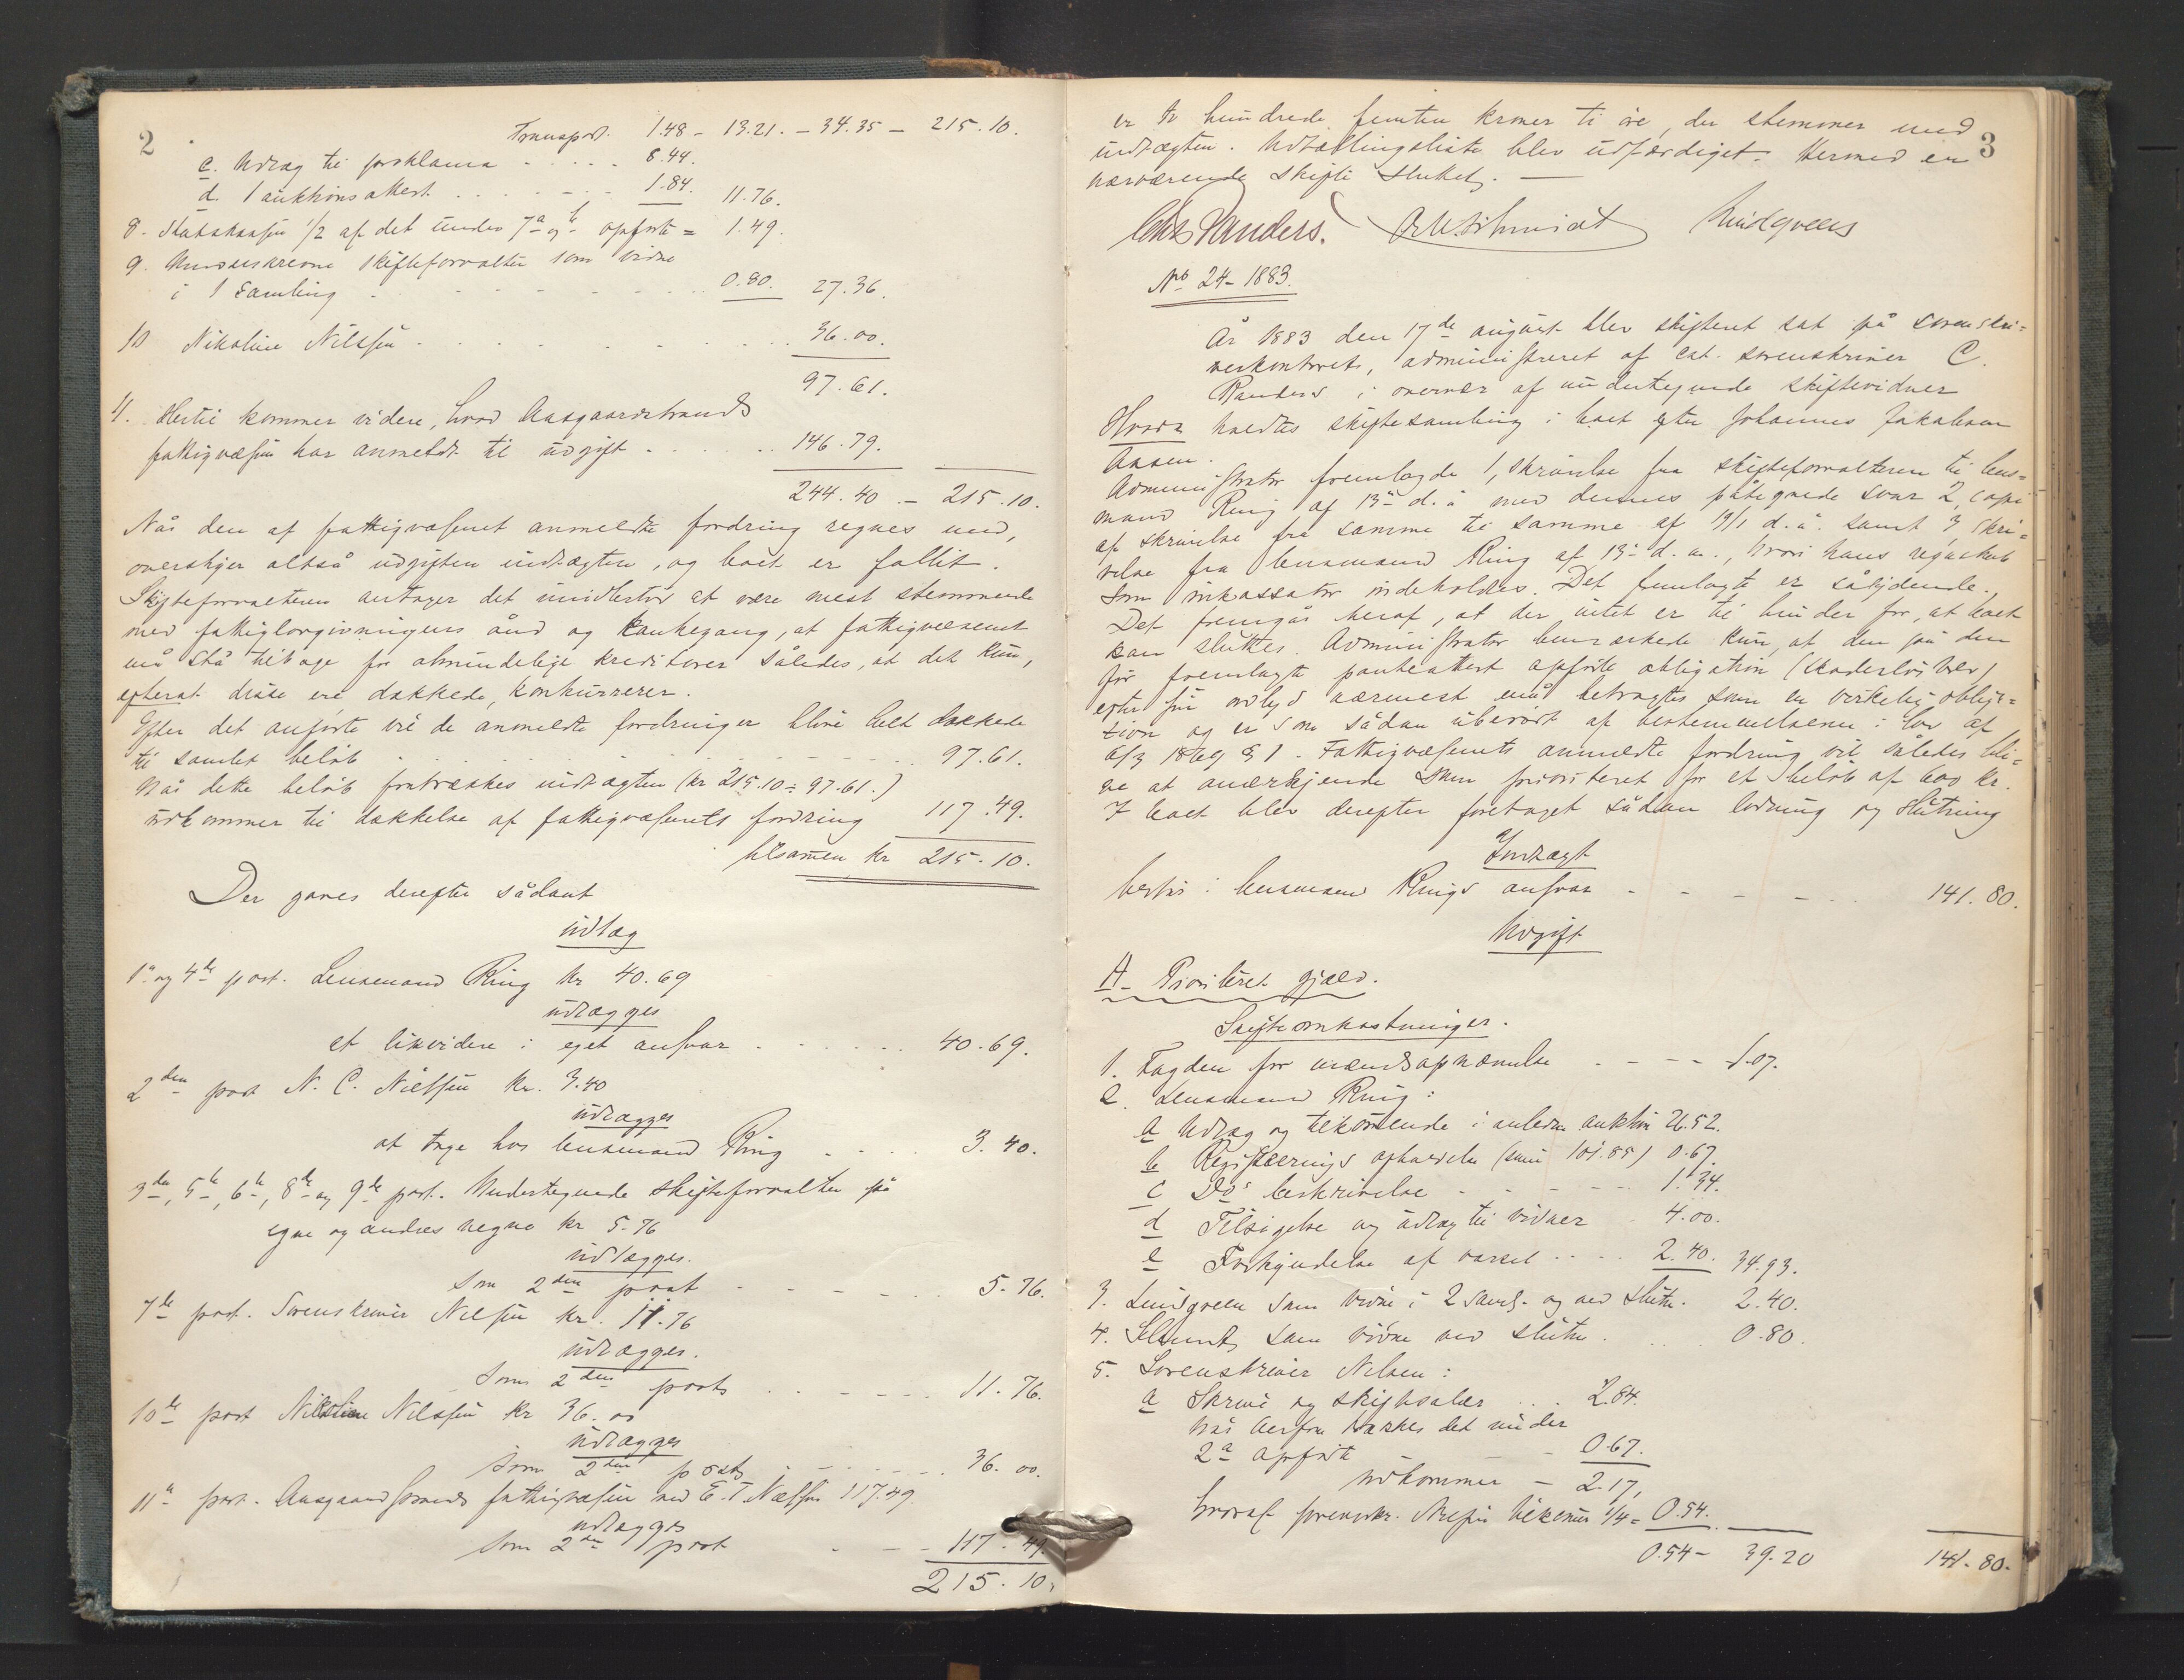 2
Transport. 1.48 - 13.21. - 34.35 - 215.10.
c. Udlæg til proklama . . . . . 8.44.
d. 1 auktionsattest . . . . . 1.84. 11.76.
8. Statskassen 1/2 af det under 7a og b opførte = 1.49.
9. Underskrevne skifteforvalter som vidne
i 1 samling . . . . . 0.80. 27.36.
10 Nikoline Nilssen . . . . . 36.00.
97.61.
11. Hertil kommer videre, hvad Aasgaardstrands
fattigvæsen har anmeldt til udgift . . . . . 146.79.
244.40 - 215.10.
Når den af fattigvæsenet anmeldte fordring regnes med,
overstiger altså udgiften indtægten, og boet er fallit.
Skifteforvalteren antager det imidlertid at være mest stemmende
med fattiglovgivningens ånd og tankegang, at fattigvæsenet
må stå tilbage for almindelige kreditorer således, at det kun,
efterat disse ere dækkede, konkurrerer.
Efter det anførte vil de anmeldte fordringer blive helt dækkede
til samlet beløb . . . . . 97.61.
Når dette beløb fratrækkes indtægten (kr 215.10 ÷ 97.61.)
udkommer til dækkelse af fattigvæsenets fordring 117.49.
tilsamen kr 215.10.
Der gaves derefter sådant
udlæg
1ste og 4de post. Lensmand Ring kr 40.69
udlægges
at likvidere i eget ansvar . . . . . 40.69.
2den post N. C. Nielsen kr. 3.40
udlægges
at tage hos lensmand Ring . . . . 3.40.
3die, 5te, 6te, 8de og 9de post. Undertegnede skifteforvalter på
egne og andres vegne kr 5.76
udlægges.
Som 2den post . . . . . 5.76.
7de post. Sorenskriver Nilsen kr. 11.76
udlægges.
Som 2den post . . . . . 11.76.
10de post Nikoline Nilssen kr 36.00
udlægges
som 2den post . . . . . 36.00.
11te post. Aasgaardstrands fattigvæsen ved E. T. Nielsen 117.49.
udlægges
som 2den post - - - 117.49.
215.10.
3
er to hundrede femten kroner ti øre, der stemmer med
indtægten. Udtællingsliste blev udfærdiget. Hermed er
nærværende skifte sluttet. —
Chr Randers. O M Schmidt Lindgreen
No 24 - 1883.
År 1883 den 17de august blev skifteret sat på sorenskri=
verkontoret, administreret af cst. sorenskriver C.
Randers i overvær af undertegnede skiftevidner
Hvorda holdtes skiftesamling i boet efter Johannes Jakobsen
Aasen.
Administrator fremlagde 1, skrivelse fra skifteforvalteren til lens=
mand Ring af 13de d. å med dennes påtegnede svar 2, copi
af skrivelse fra samme til samme af 19/1 d. å. samt 3 skri=
velse fra lensmand Ring af 13de d. m., hvori hans regnskab
som inkassator indeholdes. Det fremlagte er sålydende.
Det fremgår heraf, at der intet er til hinder for, at boet
kan sluttes. Administrator bemærkede kun, at den på den
før fremlagte panteattest opførte obligation (skadesløsbrev)
efter sin ordlyd nærmest må betragtes som en virkelig obliga=
tion og er som sådan uberørt af bestemmelserne i lov af
6/3 1869 § 1. Fattigvæsenets anmeldte fordring vil således bli=
ve at anerkjende som prioriteret for et beløb af 600 kr.
I boet blev derefter foretaget sådan lodning og slutning
Indtægt
består i lensmand Rings ansvar - - - - . . 141.80.
Udgift
A - Prioriteret gjæld.
Skifteomkostninger.
1. Fogden for mændsopnævnelse . - - - 1.07.
2. Lensmand Ring:
a Udlæg og tilkommende i anledn auktion 26.52.
b Registreringsafhændelse (sum 101.85) 0.67.
c Dos beskrivelse - - - - - 1.34.
d Tilsigelse og udlæg til vidner . 4.00.
e Forkyndelse af varsel . . . . 2.40. 34.93.
3. Lindgreen som vidne i 2 saml. og ved slutn. 2.40.
4. Schmidt som vidne ved slutn. . . . 0.80.
5. Sorenskriver Nilsen:
a Skrive og skiftesalær . . . 2.84.
når herfra trækkes det under
2a opførte - 0.67.
udkommer - 2.17,
hvoraf sorenskr. Nilsen tilkommer 1/4 = 0.54.
0.54 - 39.20 141.80.